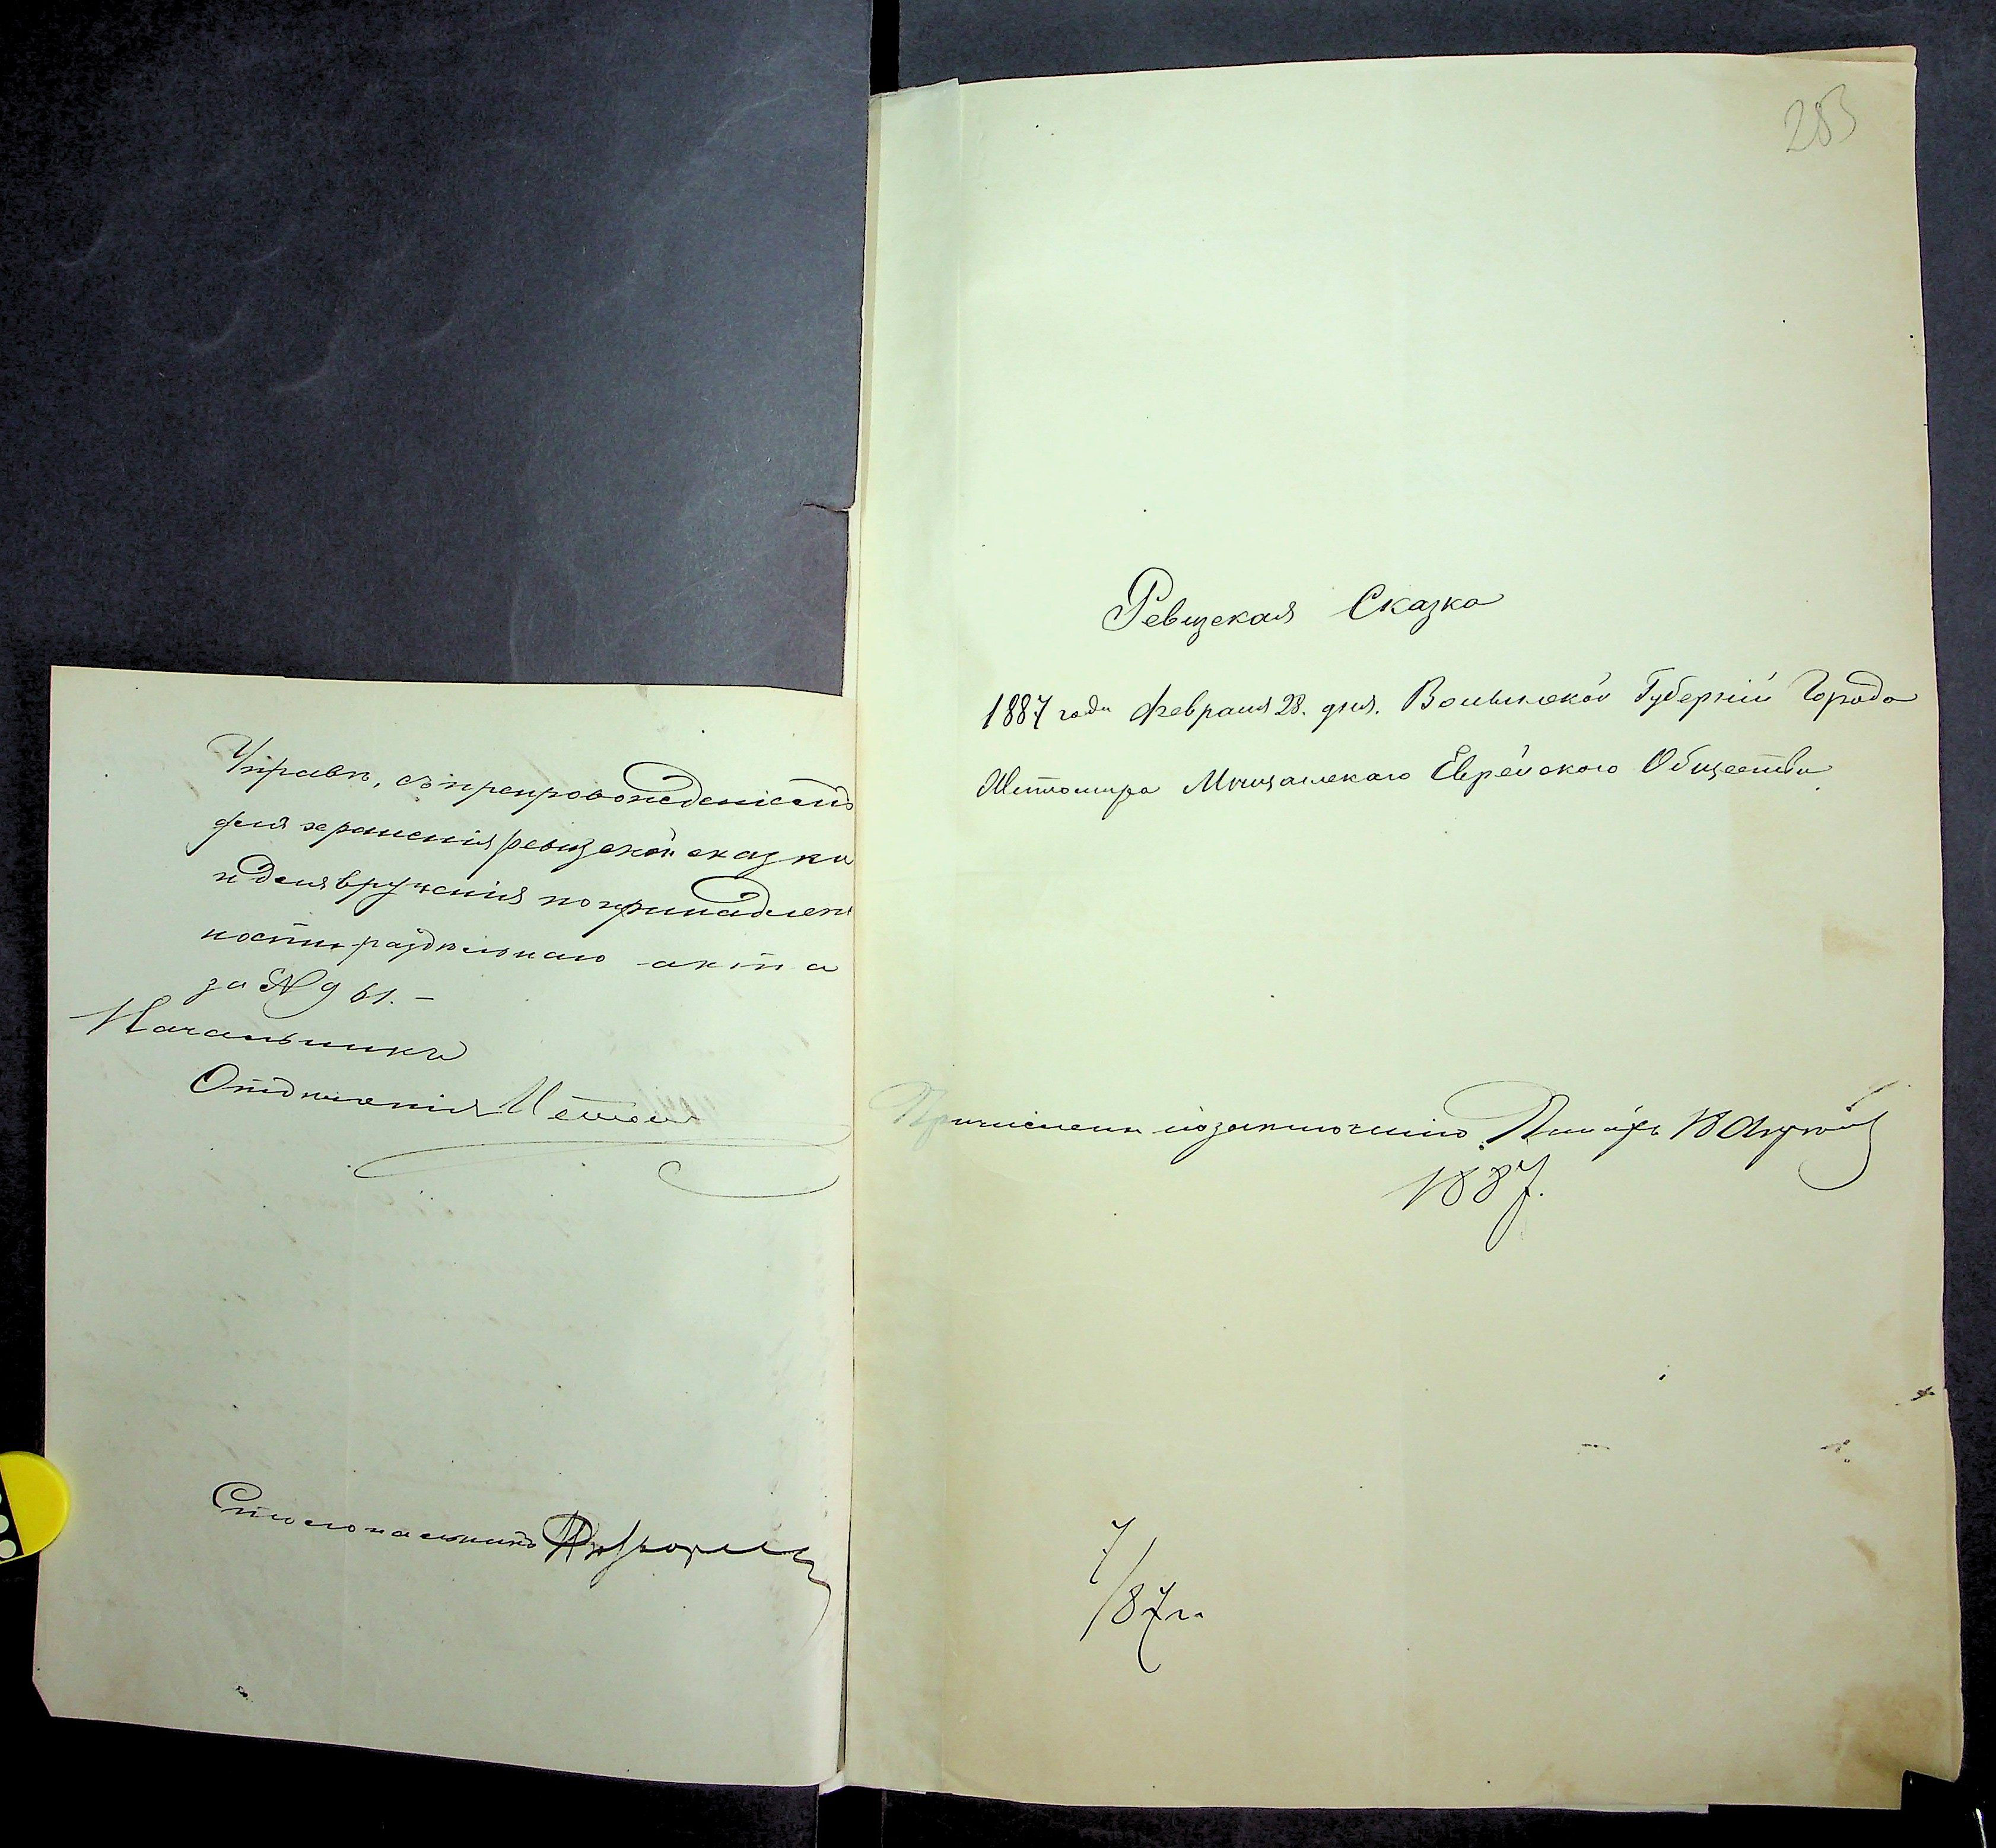 Управѣ, съ препровожденіемъ
для храненія ревизской сказки
и для врученія по принадлеж
ности раздѣльнаго акта
за № 961.-
Начальникъ
Отдѣленія
Столоначальникъ
283
Ревизская Сказка
1887 года Февраля 28. дня. Волынской Губерніи Города
Житомира Мѣщанскаго Еврейского Общества
Причислены по заключенію Палаты 18
1887.
7/87 г.